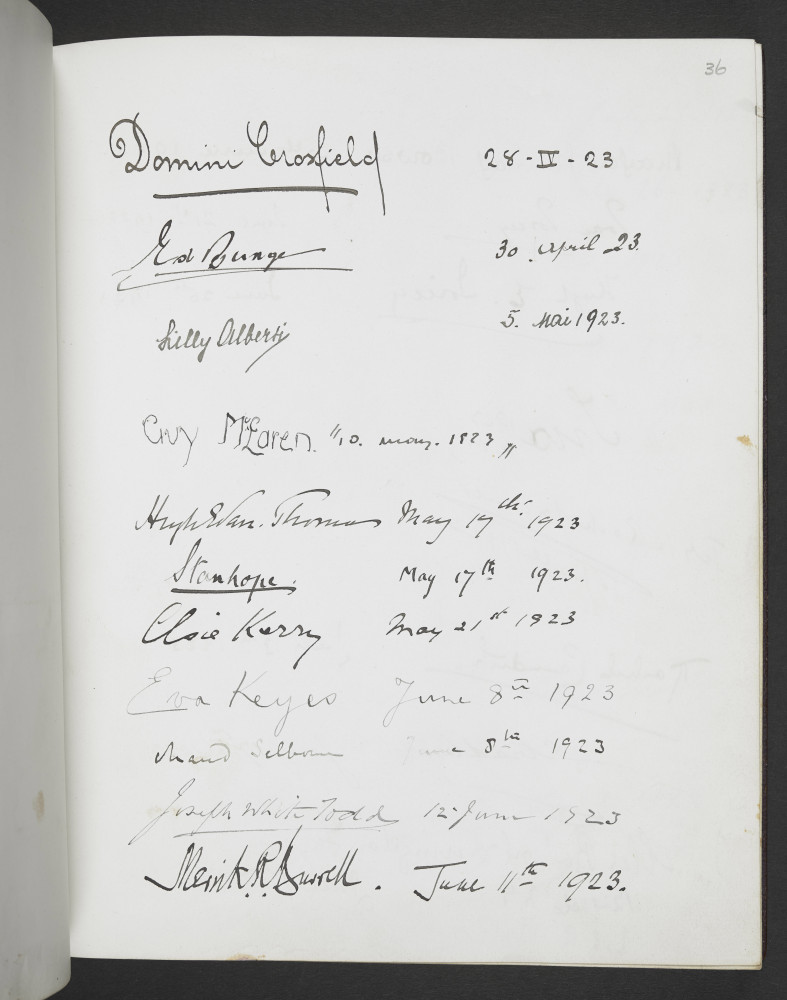 36
Domini Crosfield 28-IV-23
Ed Bunge 30 April 23.
Lilly Alberti 5. Mai 1923.
Guy McLaren. "10. may. 1923"
Hugh Evan. Thomas May 17th. 1923
Stanhope. May 17th 1923.
Elsie Kerry May 21st 1923
Eva Keyes June 8th 1923
Maud Selborne June 8th 1923
Joseph White Todd 12 June 1923
Merrik R. Burrell. June 11th 1923.